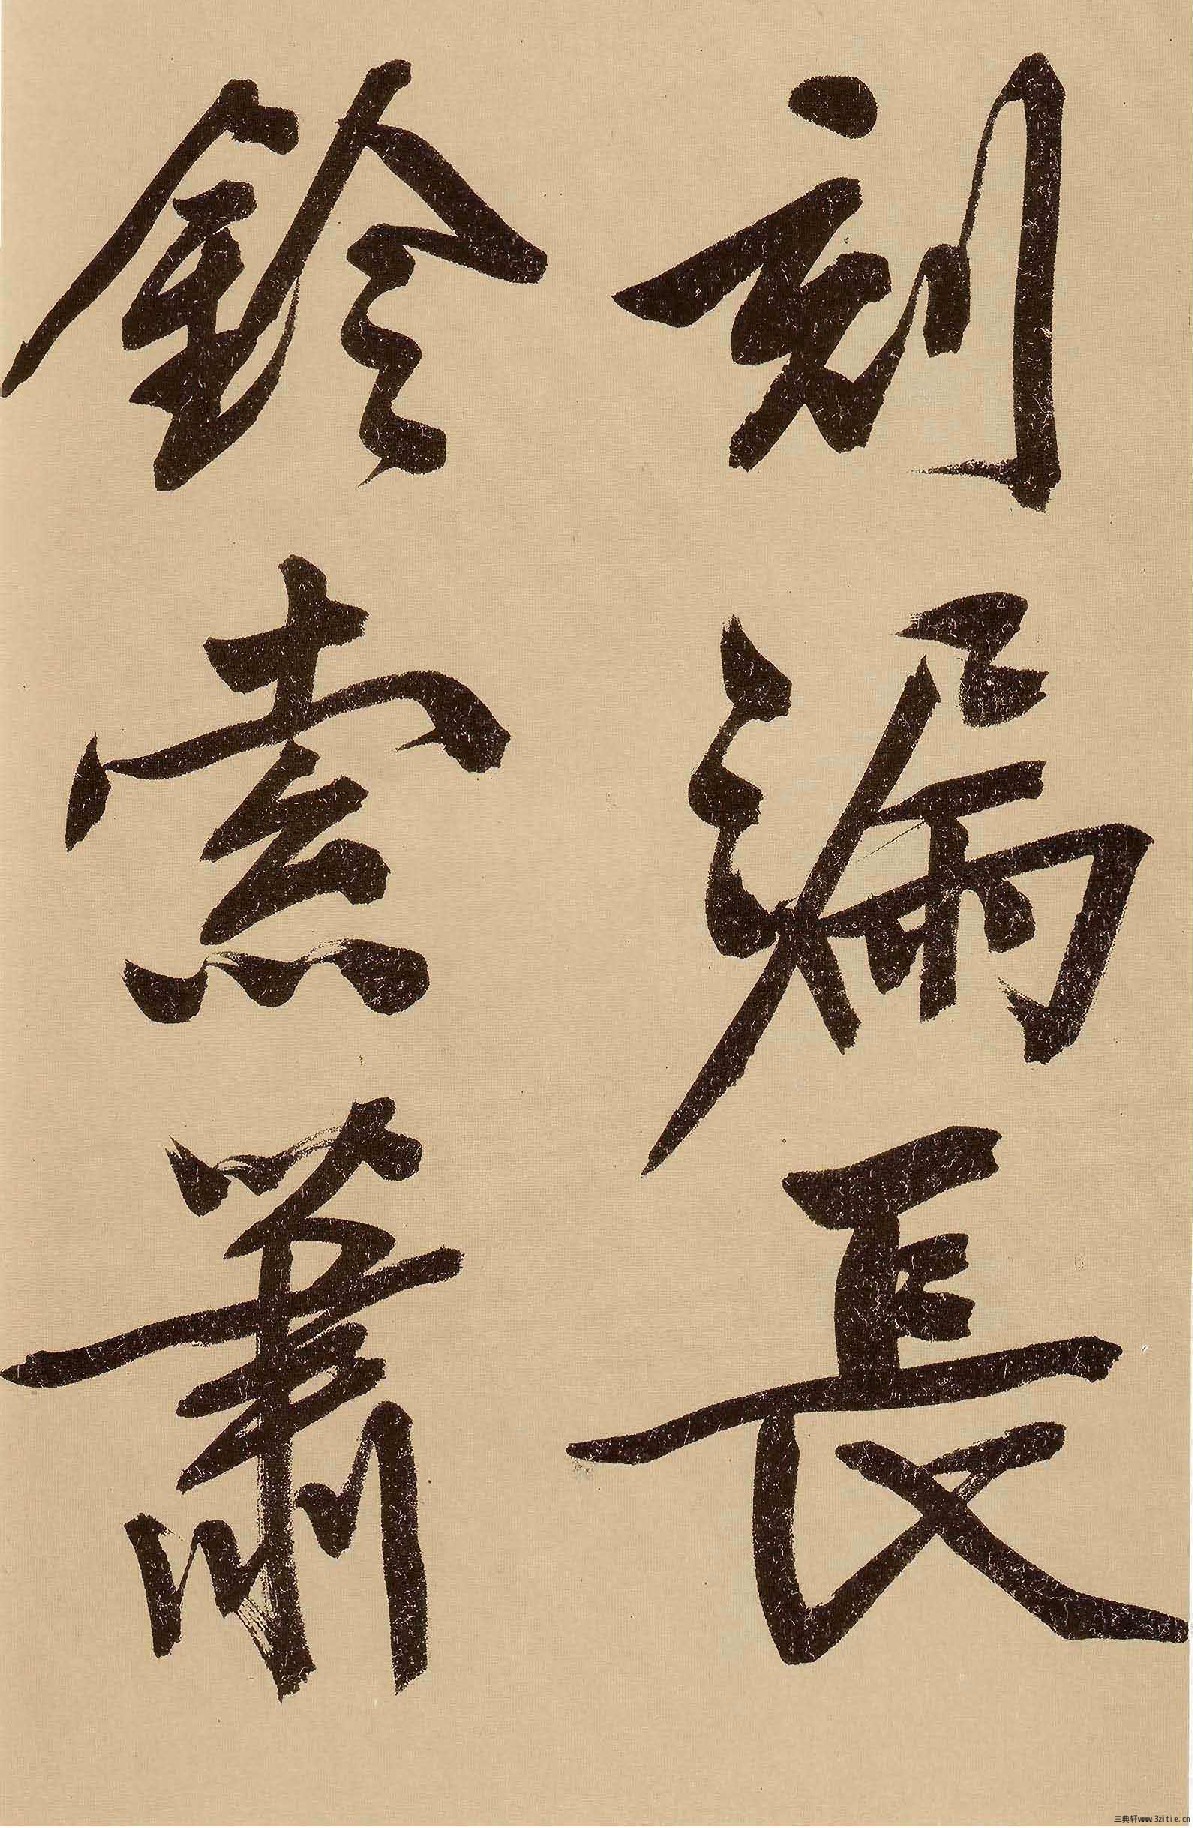 刻漏長
鈴索蕭
三典轩www.3zitie.cn